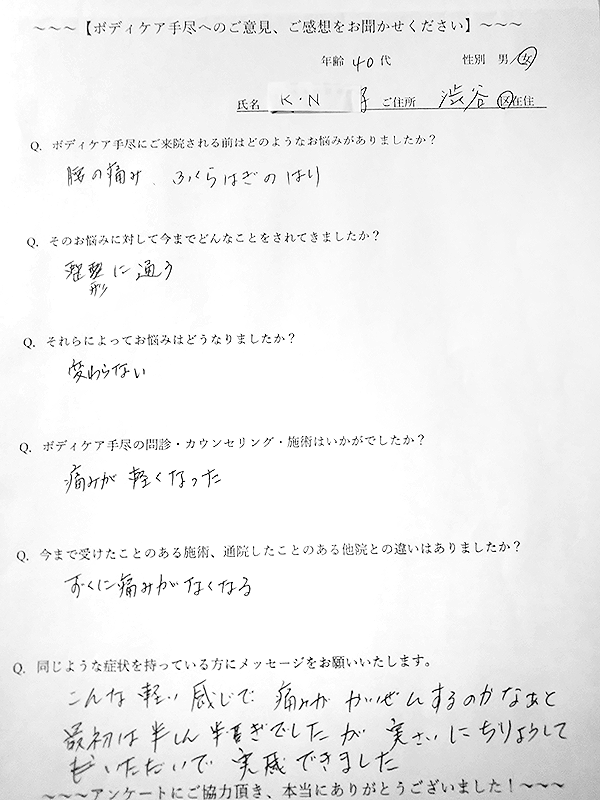 ～～～【ボディケア手尽へのご意見、ご感想をお聞かせください】～～～
年齢 40 代 性別 男/女
氏名 K・N 子 ご住所 渋谷 区在住
Q. ボディケア手尽にご来院される前はどのようなお悩みがありましたか？
腰の痛み、ふくらはぎのはり
Q. そのお悩みに対して今までどんなことをされてきましたか？
整型に通う
形
Q. それらによってお悩みはどうなりましたか？
変わらない
Q. ボディケア手尽の問診・カウンセリング・施術はいかがでしたか？
痛みが軽くなった
Q. 今まで受けたことのある施術、通院したことのある他院との違いはありましたか？
すぐに痛みがなくなる
Q. 同じような症状を持っている方にメッセージをお願いいたします。
こんな軽い感じで痛みがかいぜんするのかなぁと
最初は半しん半疑でしたが実さいにちりょうして
もいただいて実感できました
～～～アンケートにご協力頂き、本当にありがとうございました！～～～